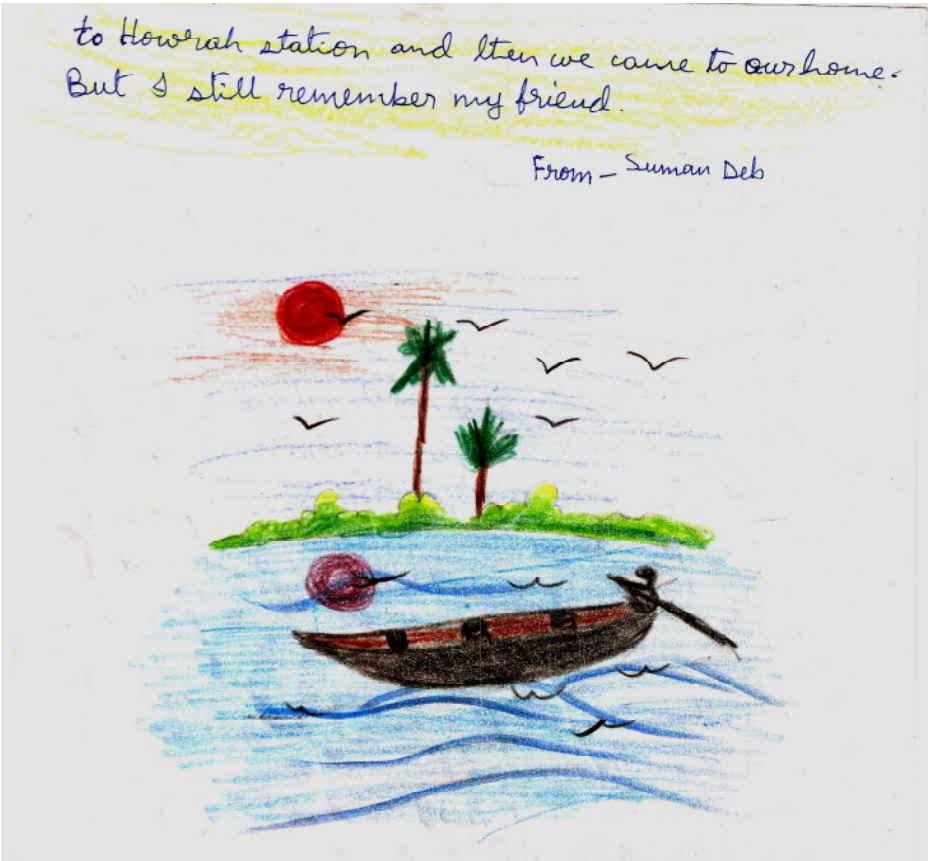 to Howrah station and then we came to our home.
But I still remember my friend.
From - Suman Deb